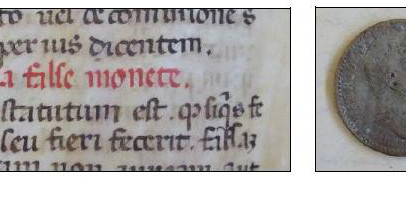 to uel de comunione s
per uis dicentem.
a false monete.
statutum est. q̄ siq̄s fe
seu fieri fecerit. fal